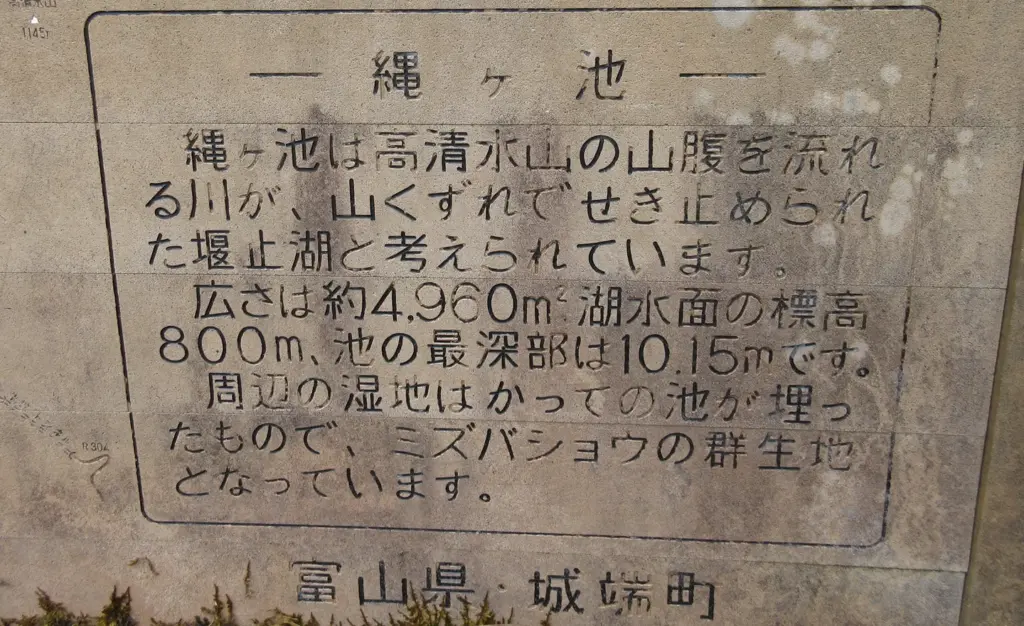 高清水山
1145m
縄ヶ池
縄ヶ池は高清水山の山腹を流れ
る川が、山くずれでせき止められ
た堰止湖と考えられています。
広さは約4,960m²湖水面の標高
800m、池の最深部は10.15mです。
周辺の湿地はかっての池が埋っ
たもので、ミズバショウの群生地
となっています。
R304
富山県・城端町